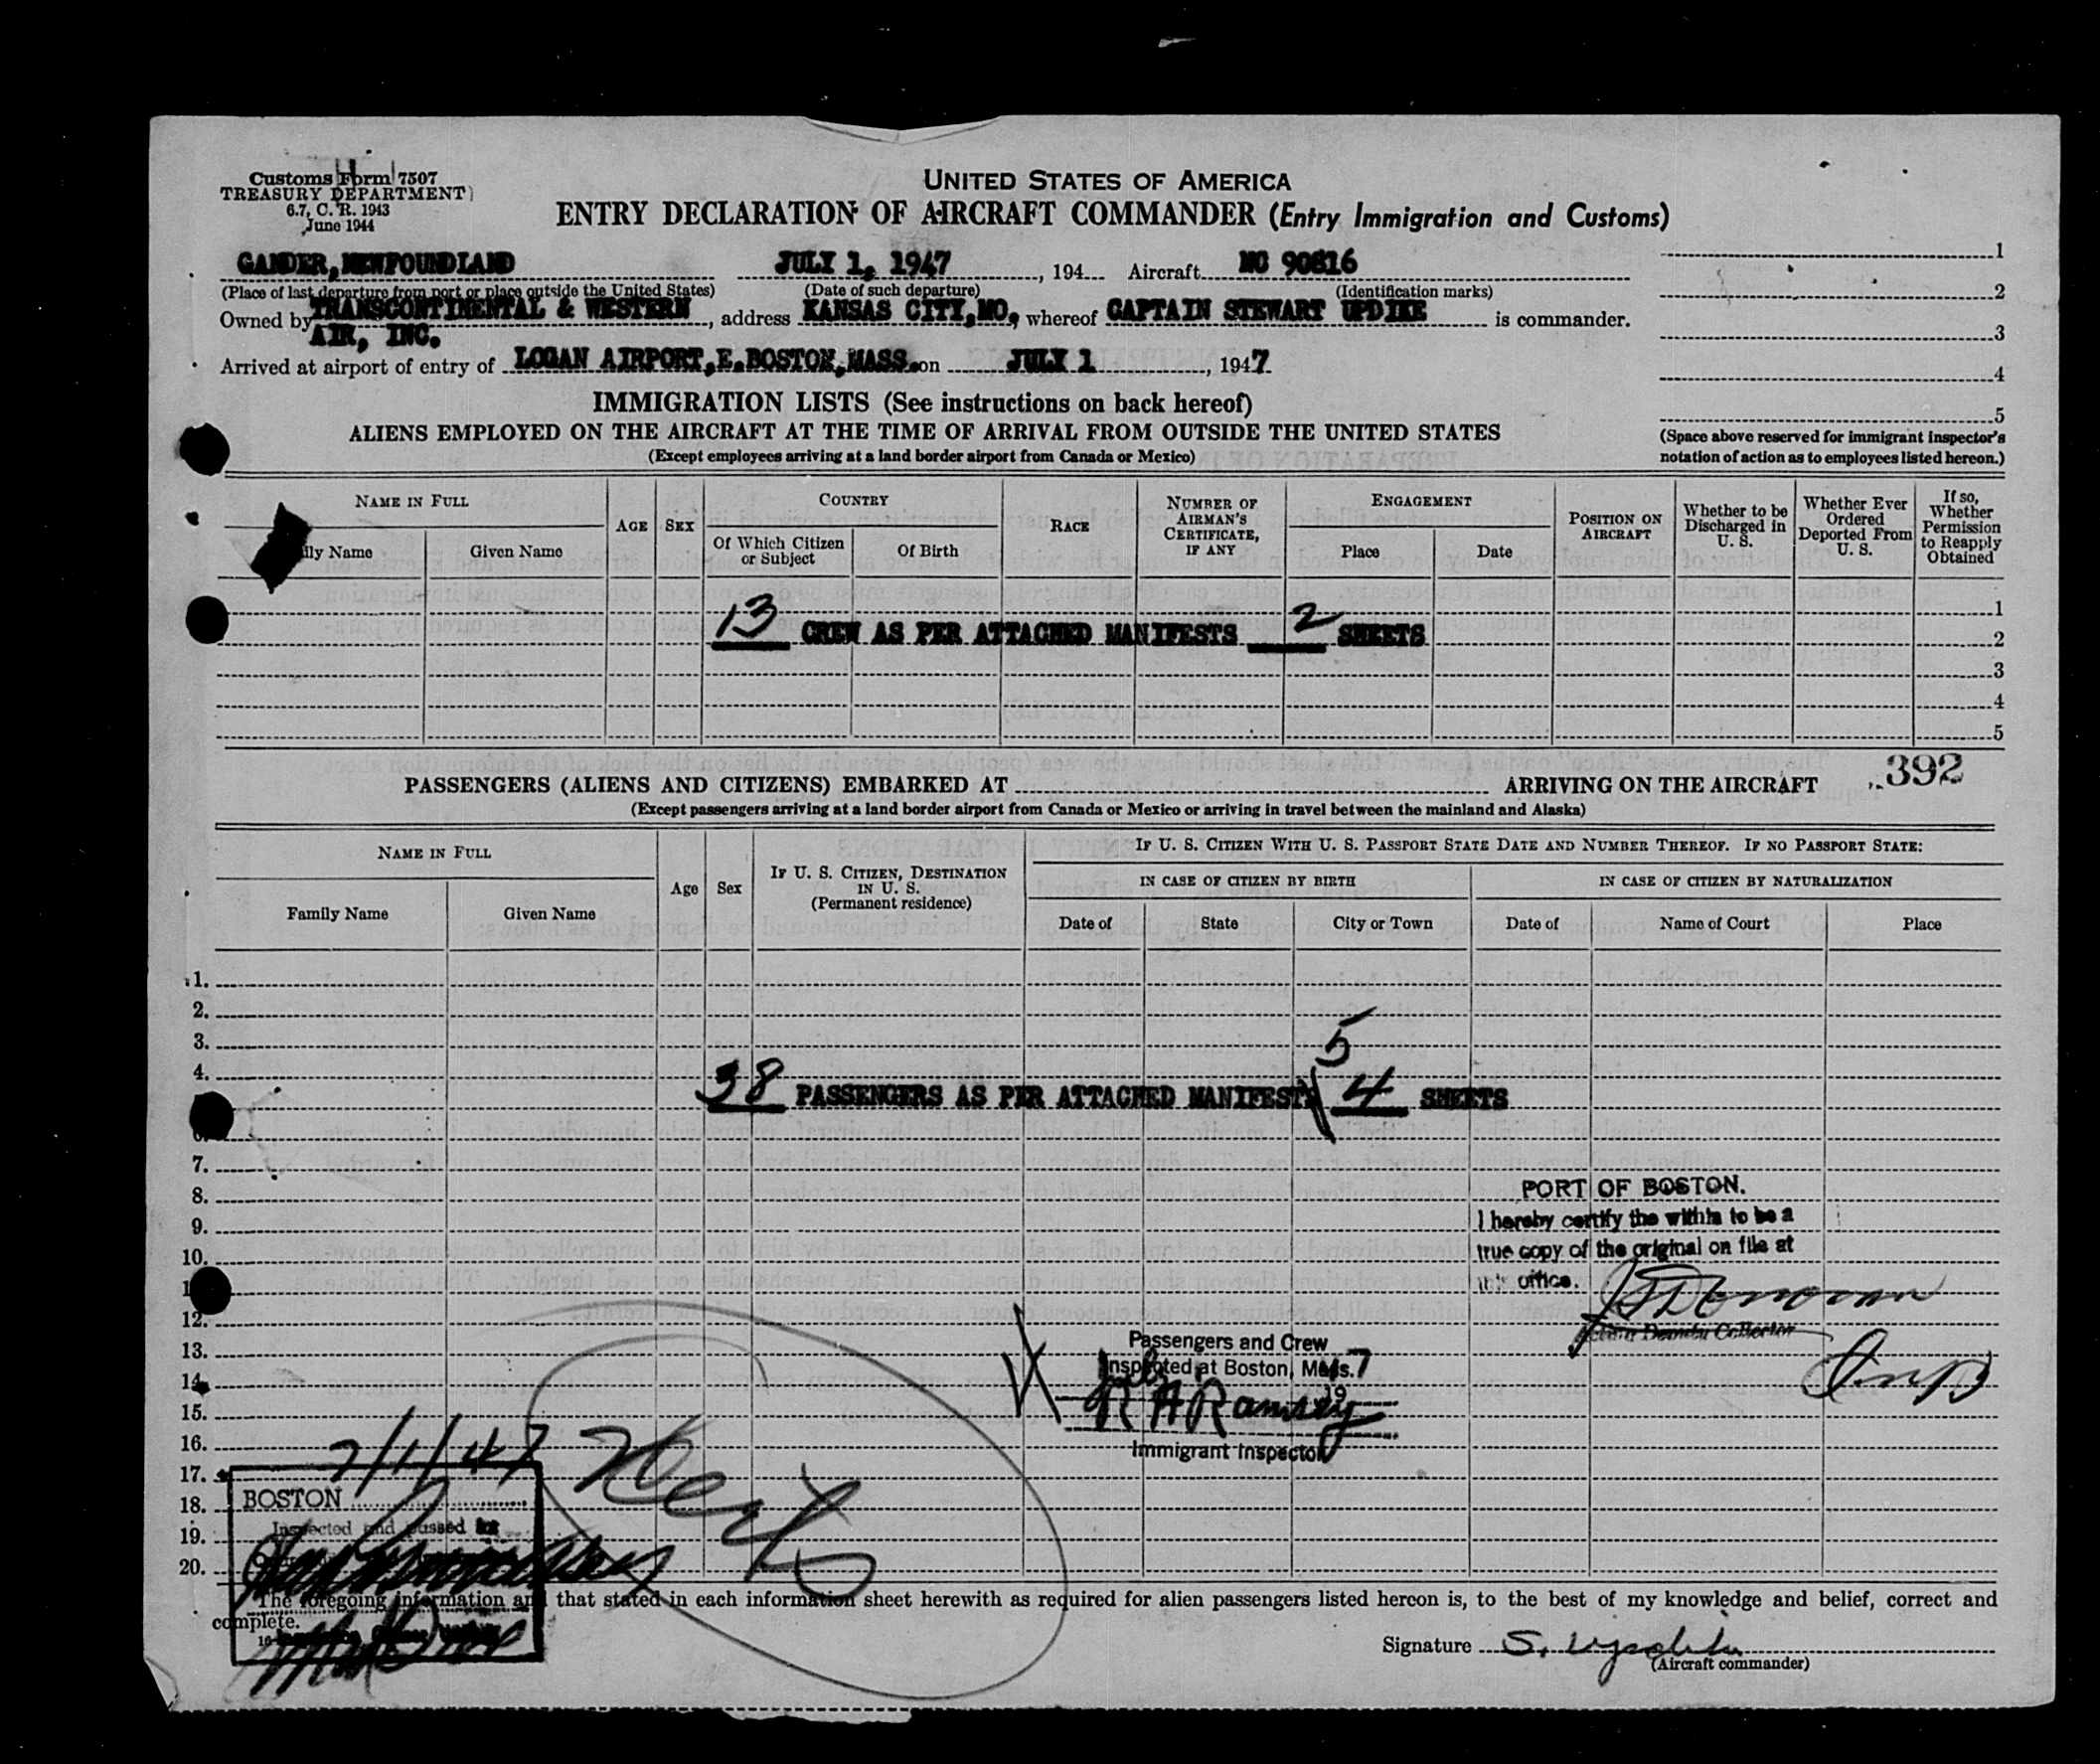 Customs Form 7507
TREASURY DEPARTMENT
6.7, C. R. 1943
June 1944
UNITED STATES OF AMERICA
ENTRY DECLARATION OF AIRCRAFT COMMANDER (Entry Immigration and Customs)
GANDER, NEWFOUNDLAND JULY 1, 1947, 194 Aircraft NC 90816
(Place of last departure from port or place outside the United States) (Date of such departure) (Identification marks)
Owned by TRANSCONTINENTAL & WESTERN AIR, INC., address KANSAS CITY, MO, whereof CAPTAIN STEWART UPDIKE is commander.
Arrived at airport of entry of LOGAN AIRPORT, E. BOSTON, MASS. on JULY 1, 1947
1
2
3
4
5
(Space above reserved for immigrant inspector's
notation of action as to employees listed hereon.)
IMMIGRATION LISTS (See instructions on back hereof)
ALIENS EMPLOYED ON THE AIRCRAFT AT THE TIME OF ARRIVAL FROM OUTSIDE THE UNITED STATES
(Except employees arriving at a land border airport from Canada or Mexico)
NAME IN FULL
ily Name Given Name
AGE
SEX
COUNTRY
Of Which Citizen or Subject
Of Birth
RACE
NUMBER OF AIRMAN'S CERTIFICATE, IF ANY
ENGAGEMENT
Place Date
POSITION ON AIRCRAFT
Whether to be Discharged in U. S.
Whether Ever Ordered Deported From U. S.
If so, Whether Permission to Reapply Obtained
1
13 CREW AS PER ATTACHED MANIFESTS 2 SHEETS 2
3
4
5
392
PASSENGERS (ALIENS AND CITIZENS) EMBARKED AT ARRIVING ON THE AIRCRAFT
(Except passengers arriving at a land border airport from Canada or Mexico or arriving in travel between the mainland and Alaska)
NAME IN FULL
Family Name Given Name
Age
Sex
IF U. S. CITIZEN, DESTINATION IN U. S.
(Permanent residence)
IF U. S. CITIZEN WITH U. S. PASSPORT STATE DATE AND NUMBER THEREOF. IF NO PASSPORT STATE:
IN CASE OF CITIZEN BY BIRTH IN CASE OF CITIZEN BY NATURALIZATION
Date of State City or Town Date of Name of Court Place
1.
2.
3.
5
4.
38 PASSENGERS AS PER ATTACHED MANIFEST 4 SHEETS
7.
8.
PORT OF BOSTON.
9.
I hereby certify the within to be a
10.
true copy of the original on file at
office.
12.
Deputy Collector
13.
Passengers and Crew
Inspected at Boston, Mass.
14.
R A Ramsey
15.
Immigrant Inspector
16.
7/1/47
17.
BOSTON
18.
Inspected and passed
19.
20.
The foregoing information and that stated in each information sheet herewith as required for alien passengers listed hereon is, to the best of my knowledge and belief, correct and
complete.
Signature S. Updike
(Aircraft commander)